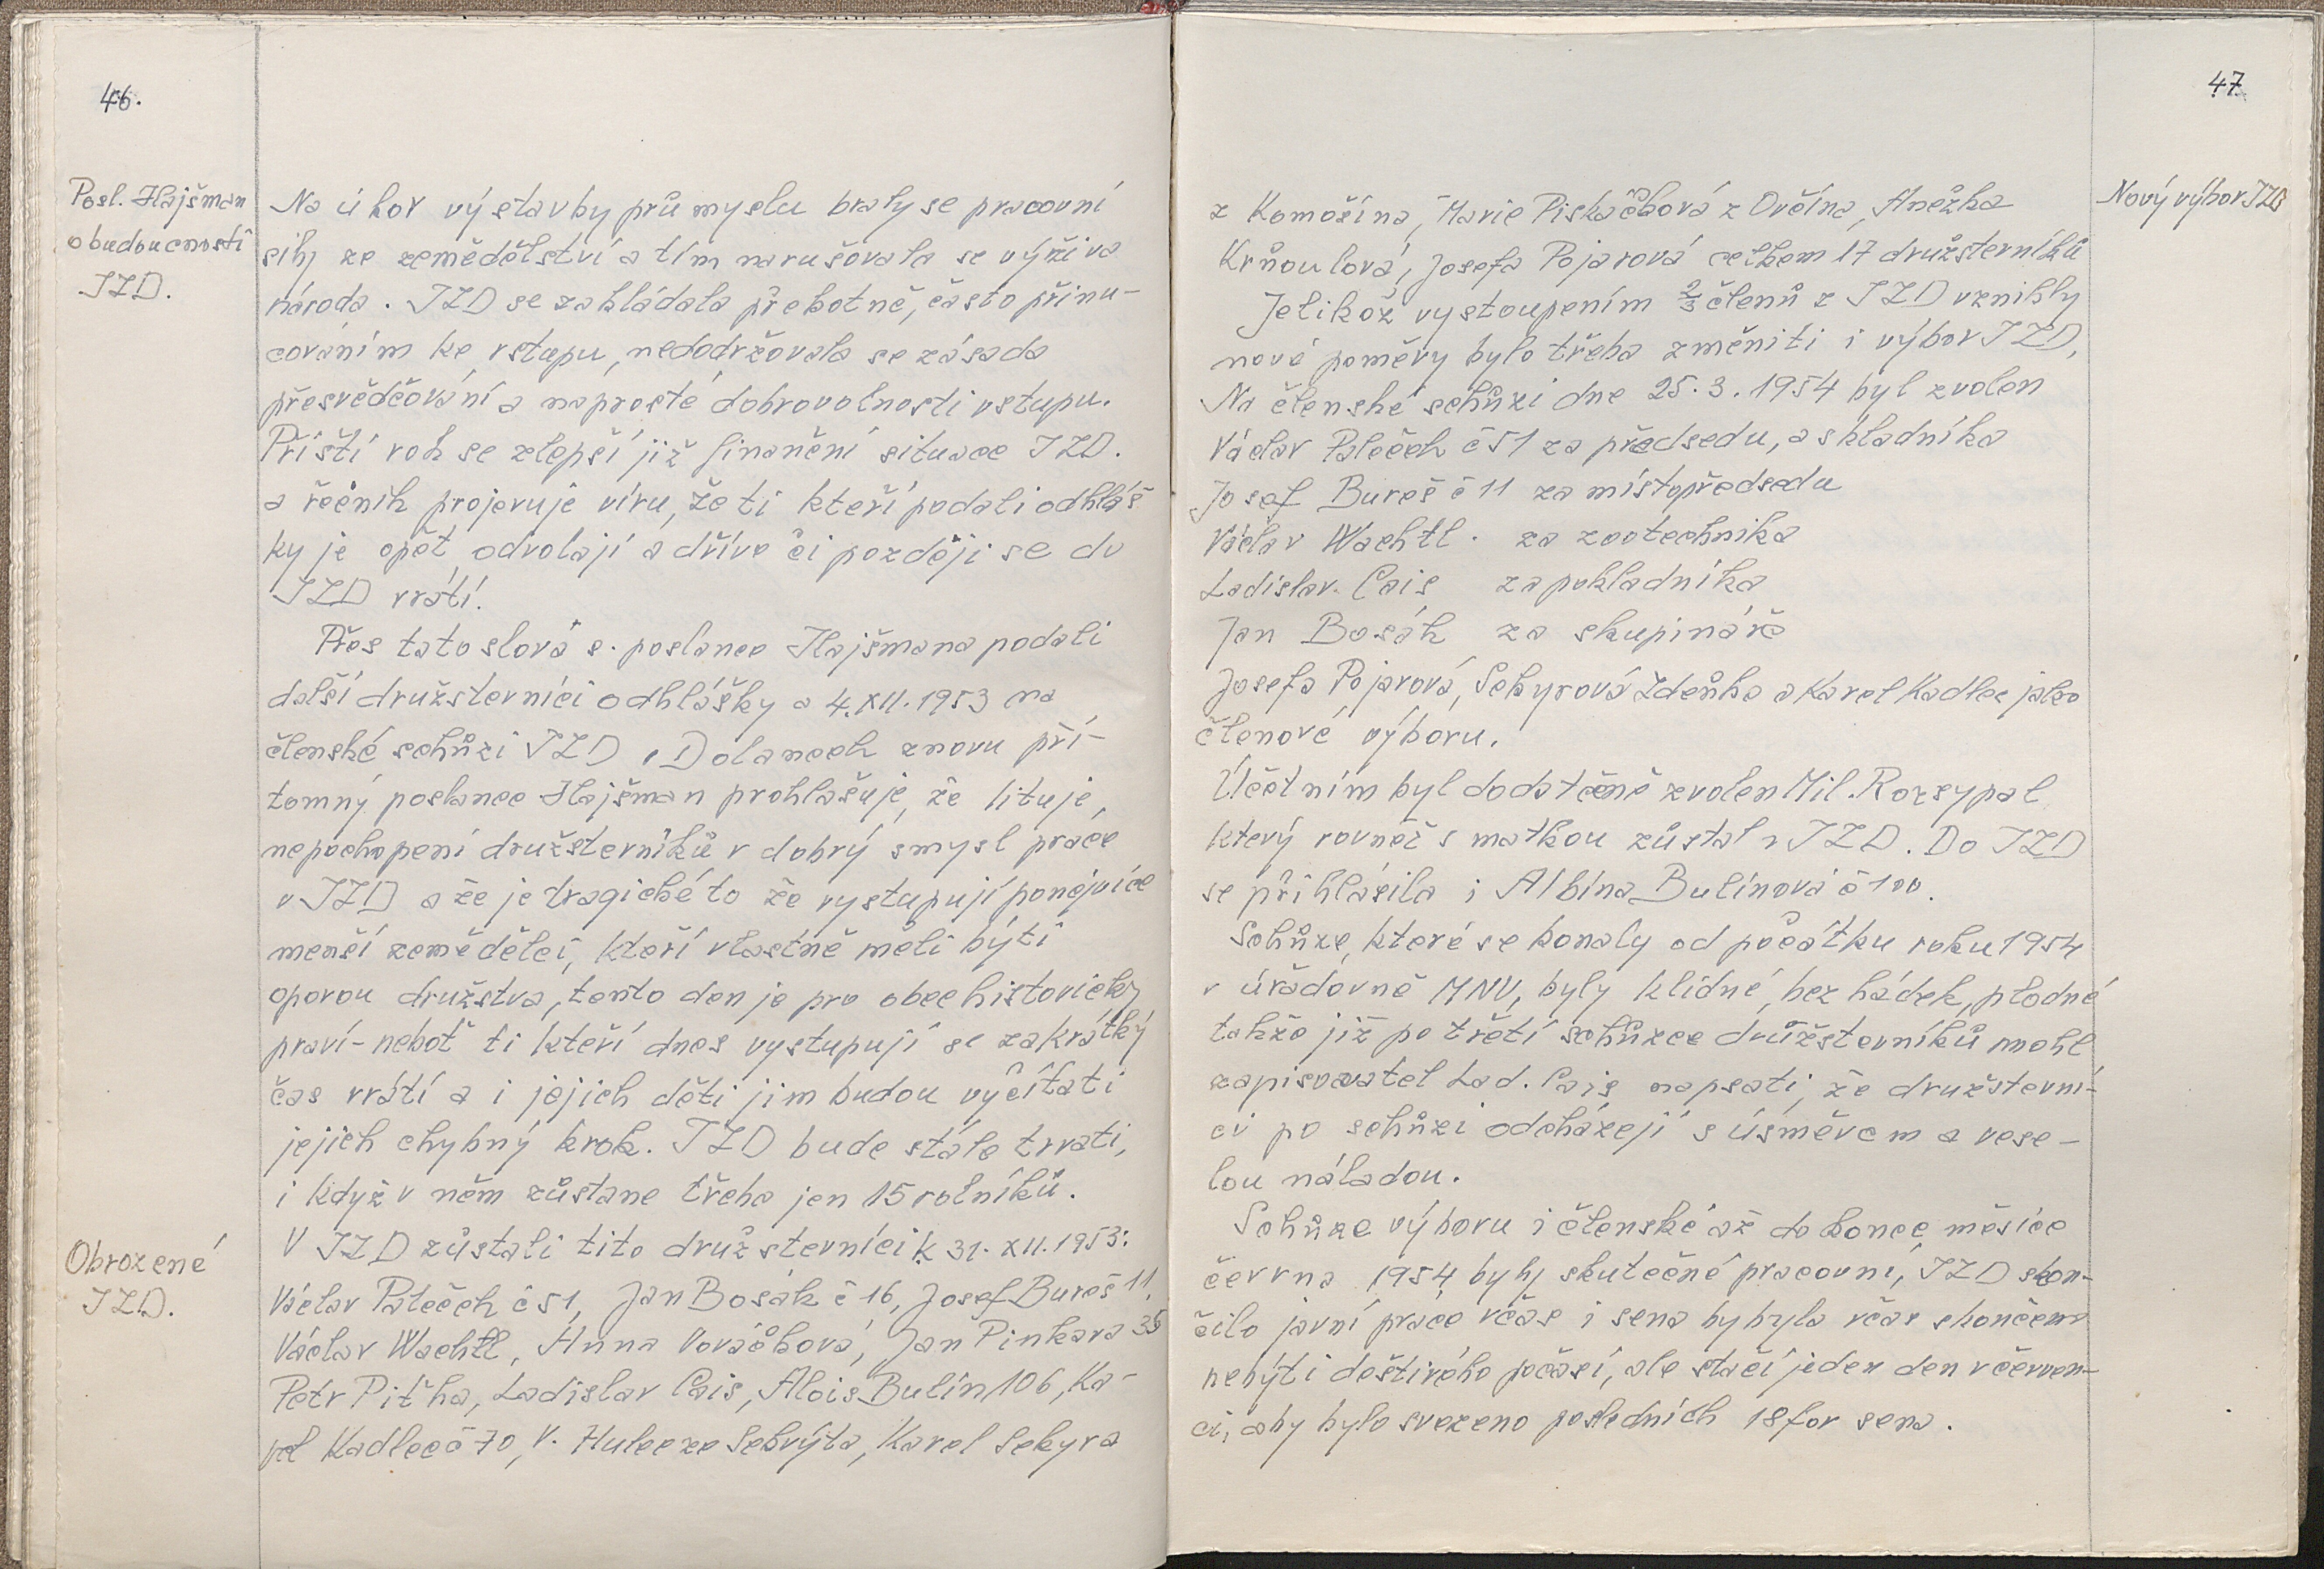 46.
Posl. Hajšman
o budoucnosti
JZD.
Na úkor výstavby průmyslu braly se pracovní
síly ze zemědělství a tím narušovala se výživa
národa. JZD se zakládala překotně, často přinu-
cováním ke vstupu, nedodržovala se zásada
přesvědčování a naprosté dobrovolnosti vstupu.
Příští rok se zlepší již finanční situace JZD.
a řečník projevuje víru, že ti kteří podali odhláš
ky je opět odvolají a dříve či později se do
JZD vrátí.
Přes tato slova s. poslance Hajšmana podali
další družstevníci odhlášky a 4.XII.1953 na
členské schůzi JZD v Dolanech znovu pří-
tomný poslanec Hajšman prohlašuje, že lituje,
nepochopení družstevníků v dobrý smysl práce
v JZD a že je tragické to že vystupují ponejvíce
menší zemědělci, kteří vlastně měli býti
oporou družstva, tento den je pro obec historický
praví - neboť ti kteří dnes vystupují se zakrátký
čas vrátí a i jejich děti jim budou vyčítati
jejich chybný krok. JZD bude stále trvati,
i když v něm zůstane třeba jen 15 rolníků.
Obrozené
JZD.
V JZD zůstali tito družstevníci k 31. XII. 1953:
Václav Paleček č 51, Jan Bosák č 16, Josef Bureš 11,
Václav Wachtl, Anna Nováčková, Jan Pinkava 35
Petr Piťha, Ladislav Cais, Alois Bulín 106, Ka-
rel Kadlec č 70, V. Hulec ze Sekrýta, Karel Sekyra
47.
Nový výbor JZD
z Komošína, Marie Piskáčková z Ovčína, Anežka
Krňoulová, Josefa Pojarová celkem 17 družsterníků
Jelikož vystoupením 2/3 členů z JZD vznikly
nové poměry bylo třeba změniti i výbor JZD,
Na členské schůzi dne 25. 3. 1954 byl zvolen
Václav Paleček č 51 za předsedu, a skladníka
Josef Bureš č 11 za místopředsedu
Václav Wachtl. za zootechnika
Ladislav. Cais za pokladníka
Jan Bosák za skupináře
Josefa Pojarová, Sekyrová Zdeňka a Karel Kadlec jako
členové výboru.
Účetním byl dodatečně zvolen Mil. Rozsypal
který rovněž s matkou zůstal v JZD. Do JZD
se přihlásila i Albína Bulínová č 100.
Schůze, které se konaly od počátku roku 1954
v úřadovně MNV, byly klidné, bez hádek, plodné
takže již po třetí schůzce drůžstevníků mohl
zapisovatel Lad. Cais napsati, že družstevní-
ci po schůzi odcházejí s úsměvem a vese-
lou náladou.
Schůze výboru i členské až do konce měsíce
června 1954 byly skutečně pracovní, JZD skon-
čilo jarní práce včas i sena by byla včas skončena
nebýti deštivého počasí, ale stačí jeden den v červen-
ci, aby bylo svezeno posledních 18 for sena.